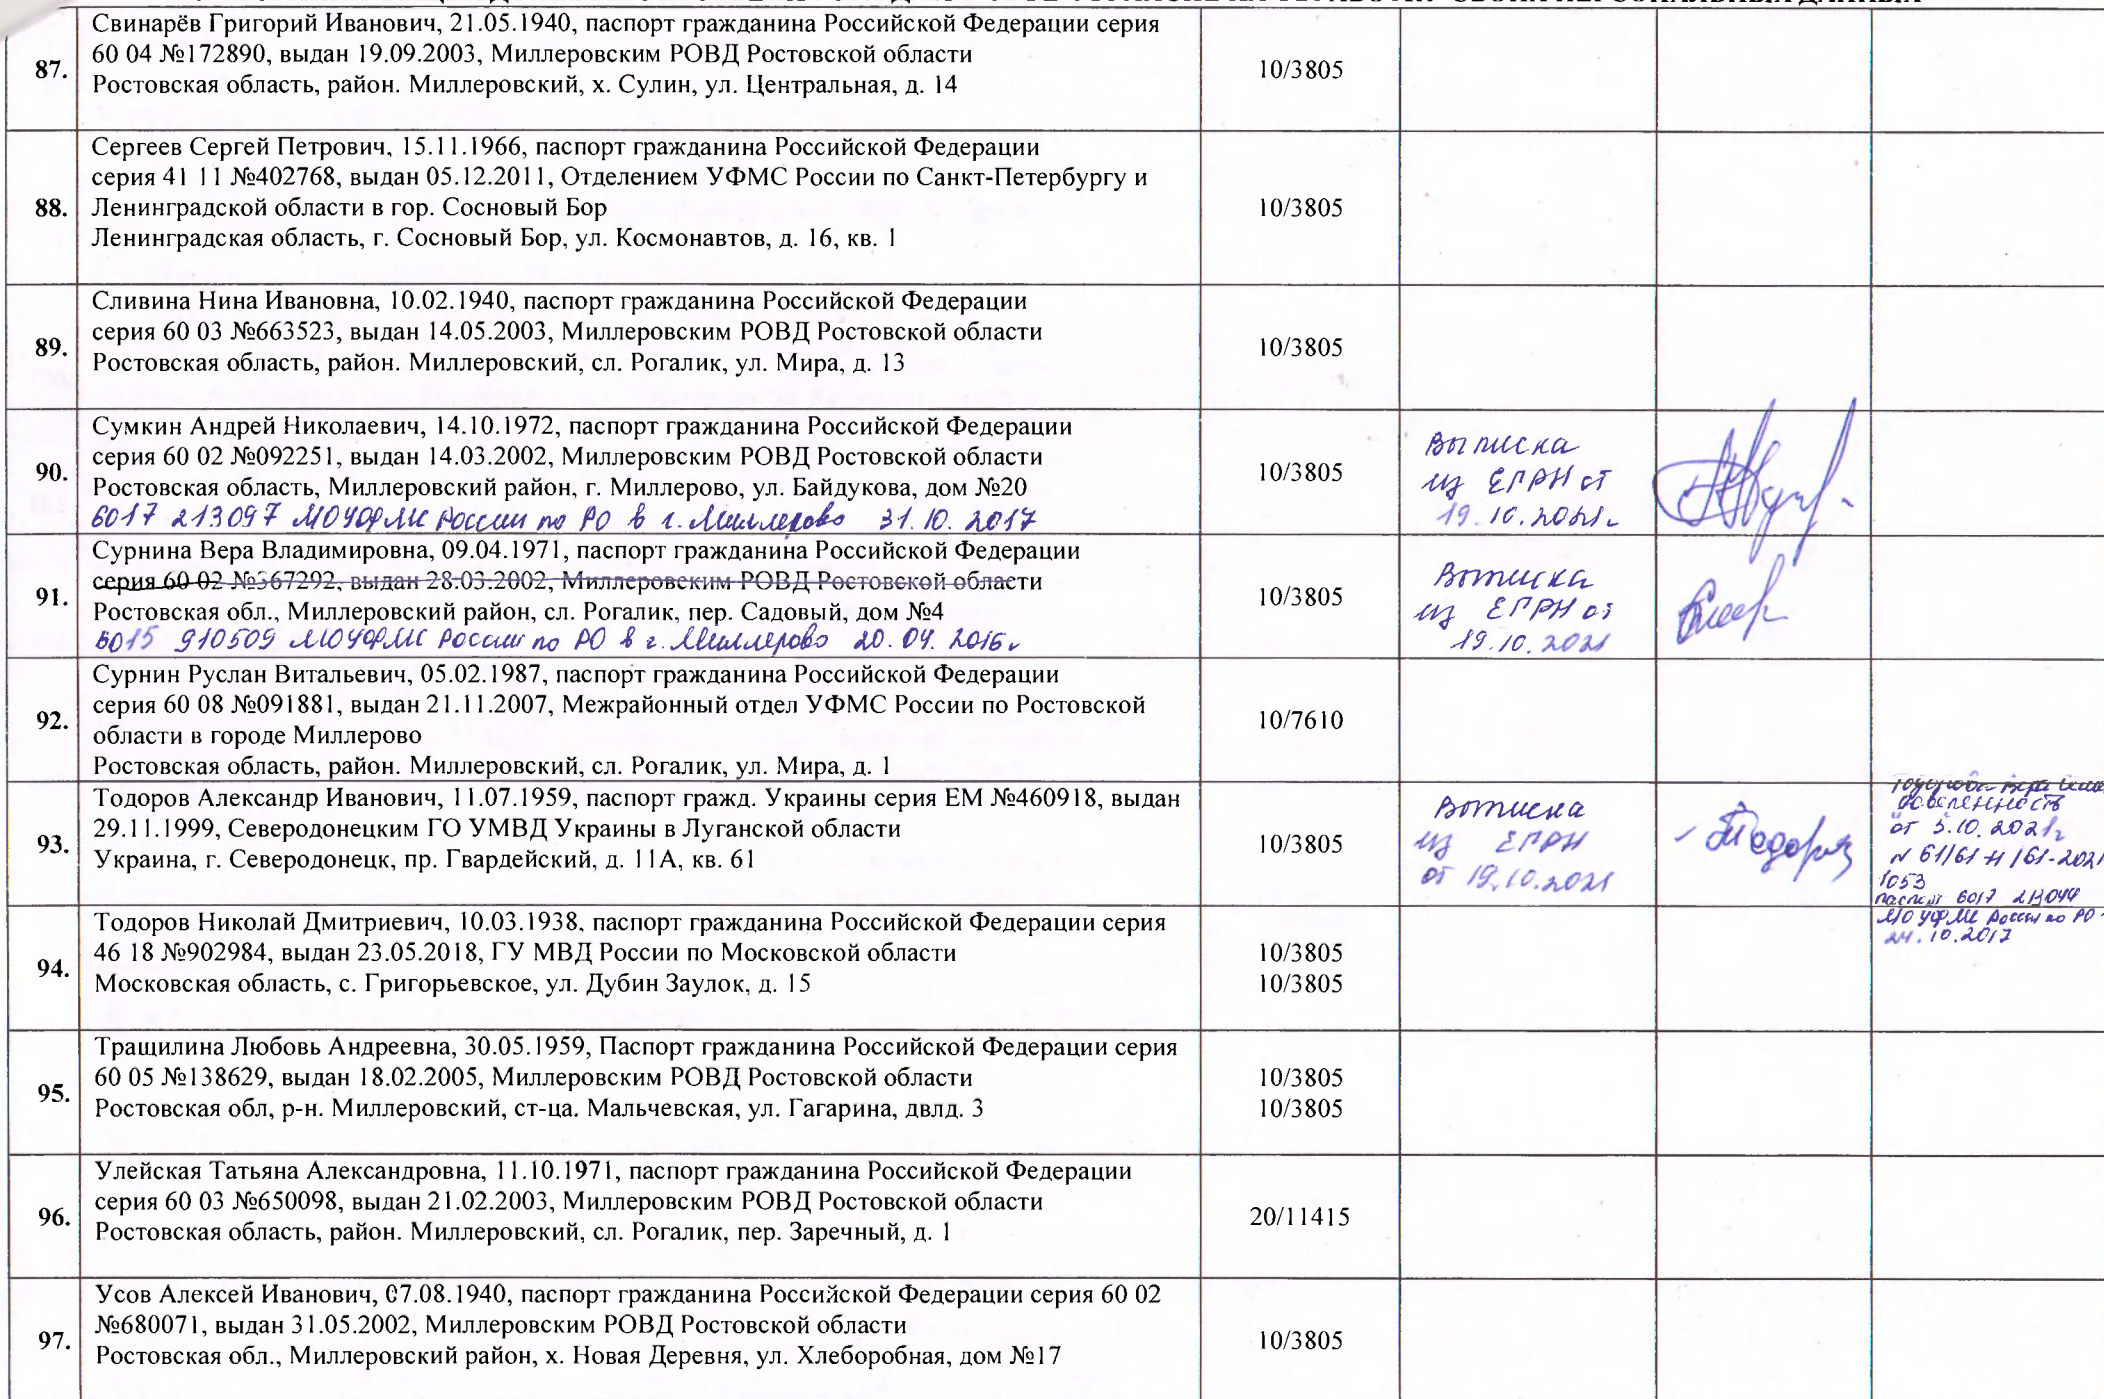 87.
Свинарёв Григорий Иванович, 21.05.1940, паспорт гражданина Российской Федерации серия
60 04 №172890, выдан 19.09.2003, Миллеровским РОВД Ростовской области
Ростовская область, район. Миллеровский, х. Сулин, ул. Центральная, д. 14
10/3805
88.
Сергеев Сергей Петрович, 15.11.1966, паспорт гражданина Российской Федерации
серия 41 11 №402768, выдан 05.12.2011, Отделением УФМС России по Санкт-Петербургу и
Ленинградской области в гор. Сосновый Бор
Ленинградская область, г. Сосновый Бор, ул. Космонавтов, д. 16, кв. 1
10/3805
89.
Сливина Нина Ивановна, 10.02.1940, паспорт гражданина Российской Федерации
серия 60 03 №663523, выдан 14.05.2003, Миллеровским РОВД Ростовской области
Ростовская область, район. Миллеровский, сл. Рогалик, ул. Мира, д. 13
10/3805
90.
Сумкин Андрей Николаевич, 14.10.1972, паспорт гражданина Российской Федерации
серия 60 02 №092251, выдан 14.03.2002, Миллеровским РОВД Ростовской области
Ростовская область, Миллеровский район, г. Миллерово, ул. Байдукова, дом №20
6017 213097 МОУФМС России по РО в г. Миллерово 31.10.2017
10/3805
Выписка
из ЕГРН от
19.10.2021г.
91.
Сурнина Вера Владимировна, 09.04.1971, паспорт гражданина Российской Федерации
серия 60 02 №367292, выдан 28.03.2002, Миллеровским РОВД Ростовской области
Ростовская обл., Миллеровский район, сл. Рогалик, пер. Садовый, дом №4
6015 910509 МОУФМС России по РО в г. Миллерово 20.04.2016г
10/3805
Выписка
из ЕГРН от
19.10.2021
92.
Сурнин Руслан Витальевич, 05.02.1987, паспорт гражданина Российской Федерации
серия 60 08 №091881, выдан 21.11.2007, Межрайонный отдел УФМС России по Ростовской
области в городе Миллерово
Ростовская область, район. Миллеровский, сл. Рогалик, ул. Мира, д. 1
10/7610
93.
Тодоров Александр Иванович, 11.07.1959, паспорт гражд. Украины серия ЕМ №460918, выдан
29.11.1999, Северодонецким ГО УМВД Украины в Луганской области
Украина, г. Северодонецк, пр. Гвардейский, д. 11А, кв. 61
10/3805
Выписка
из ЕГРН
от 19.10.2021
доверенность
от 5.10.2021г
N 61/61-н/61-2021
1053
паспорт 6017 213044
МОУФМС России по РО
24.10.2017
94.
Тодоров Николай Дмитриевич, 10.03.1938, паспорт гражданина Российской Федерации серия
46 18 №902984, выдан 23.05.2018, ГУ МВД России по Московской области
Московская область, с. Григорьевское, ул. Дубин Заулок, д. 15
10/3805
10/3805
95.
Тращилина Любовь Андреевна, 30.05.1959, Паспорт гражданина Российской Федерации серия
60 05 №138629, выдан 18.02.2005, Миллеровским РОВД Ростовской области
Ростовская обл, р-н. Миллеровский, ст-ца. Мальчевская, ул. Гагарина, двлд. 3
10/3805
10/3805
96.
Улейская Татьяна Александровна, 11.10.1971, паспорт гражданина Российской Федерации
серия 60 03 №650098, выдан 21.02.2003, Миллеровским РОВД Ростовской области
Ростовская область, район. Миллеровский, сл. Рогалик, пер. Заречный, д. 1
20/11415
97.
Усов Алексей Иванович, 07.08.1940, паспорт гражданина Российской Федерации серия 60 02
№680071, выдан 31.05.2002, Миллеровским РОВД Ростовской области
Ростовская обл., Миллеровский район, х. Новая Деревня, ул. Хлеборобная, дом №17
10/3805